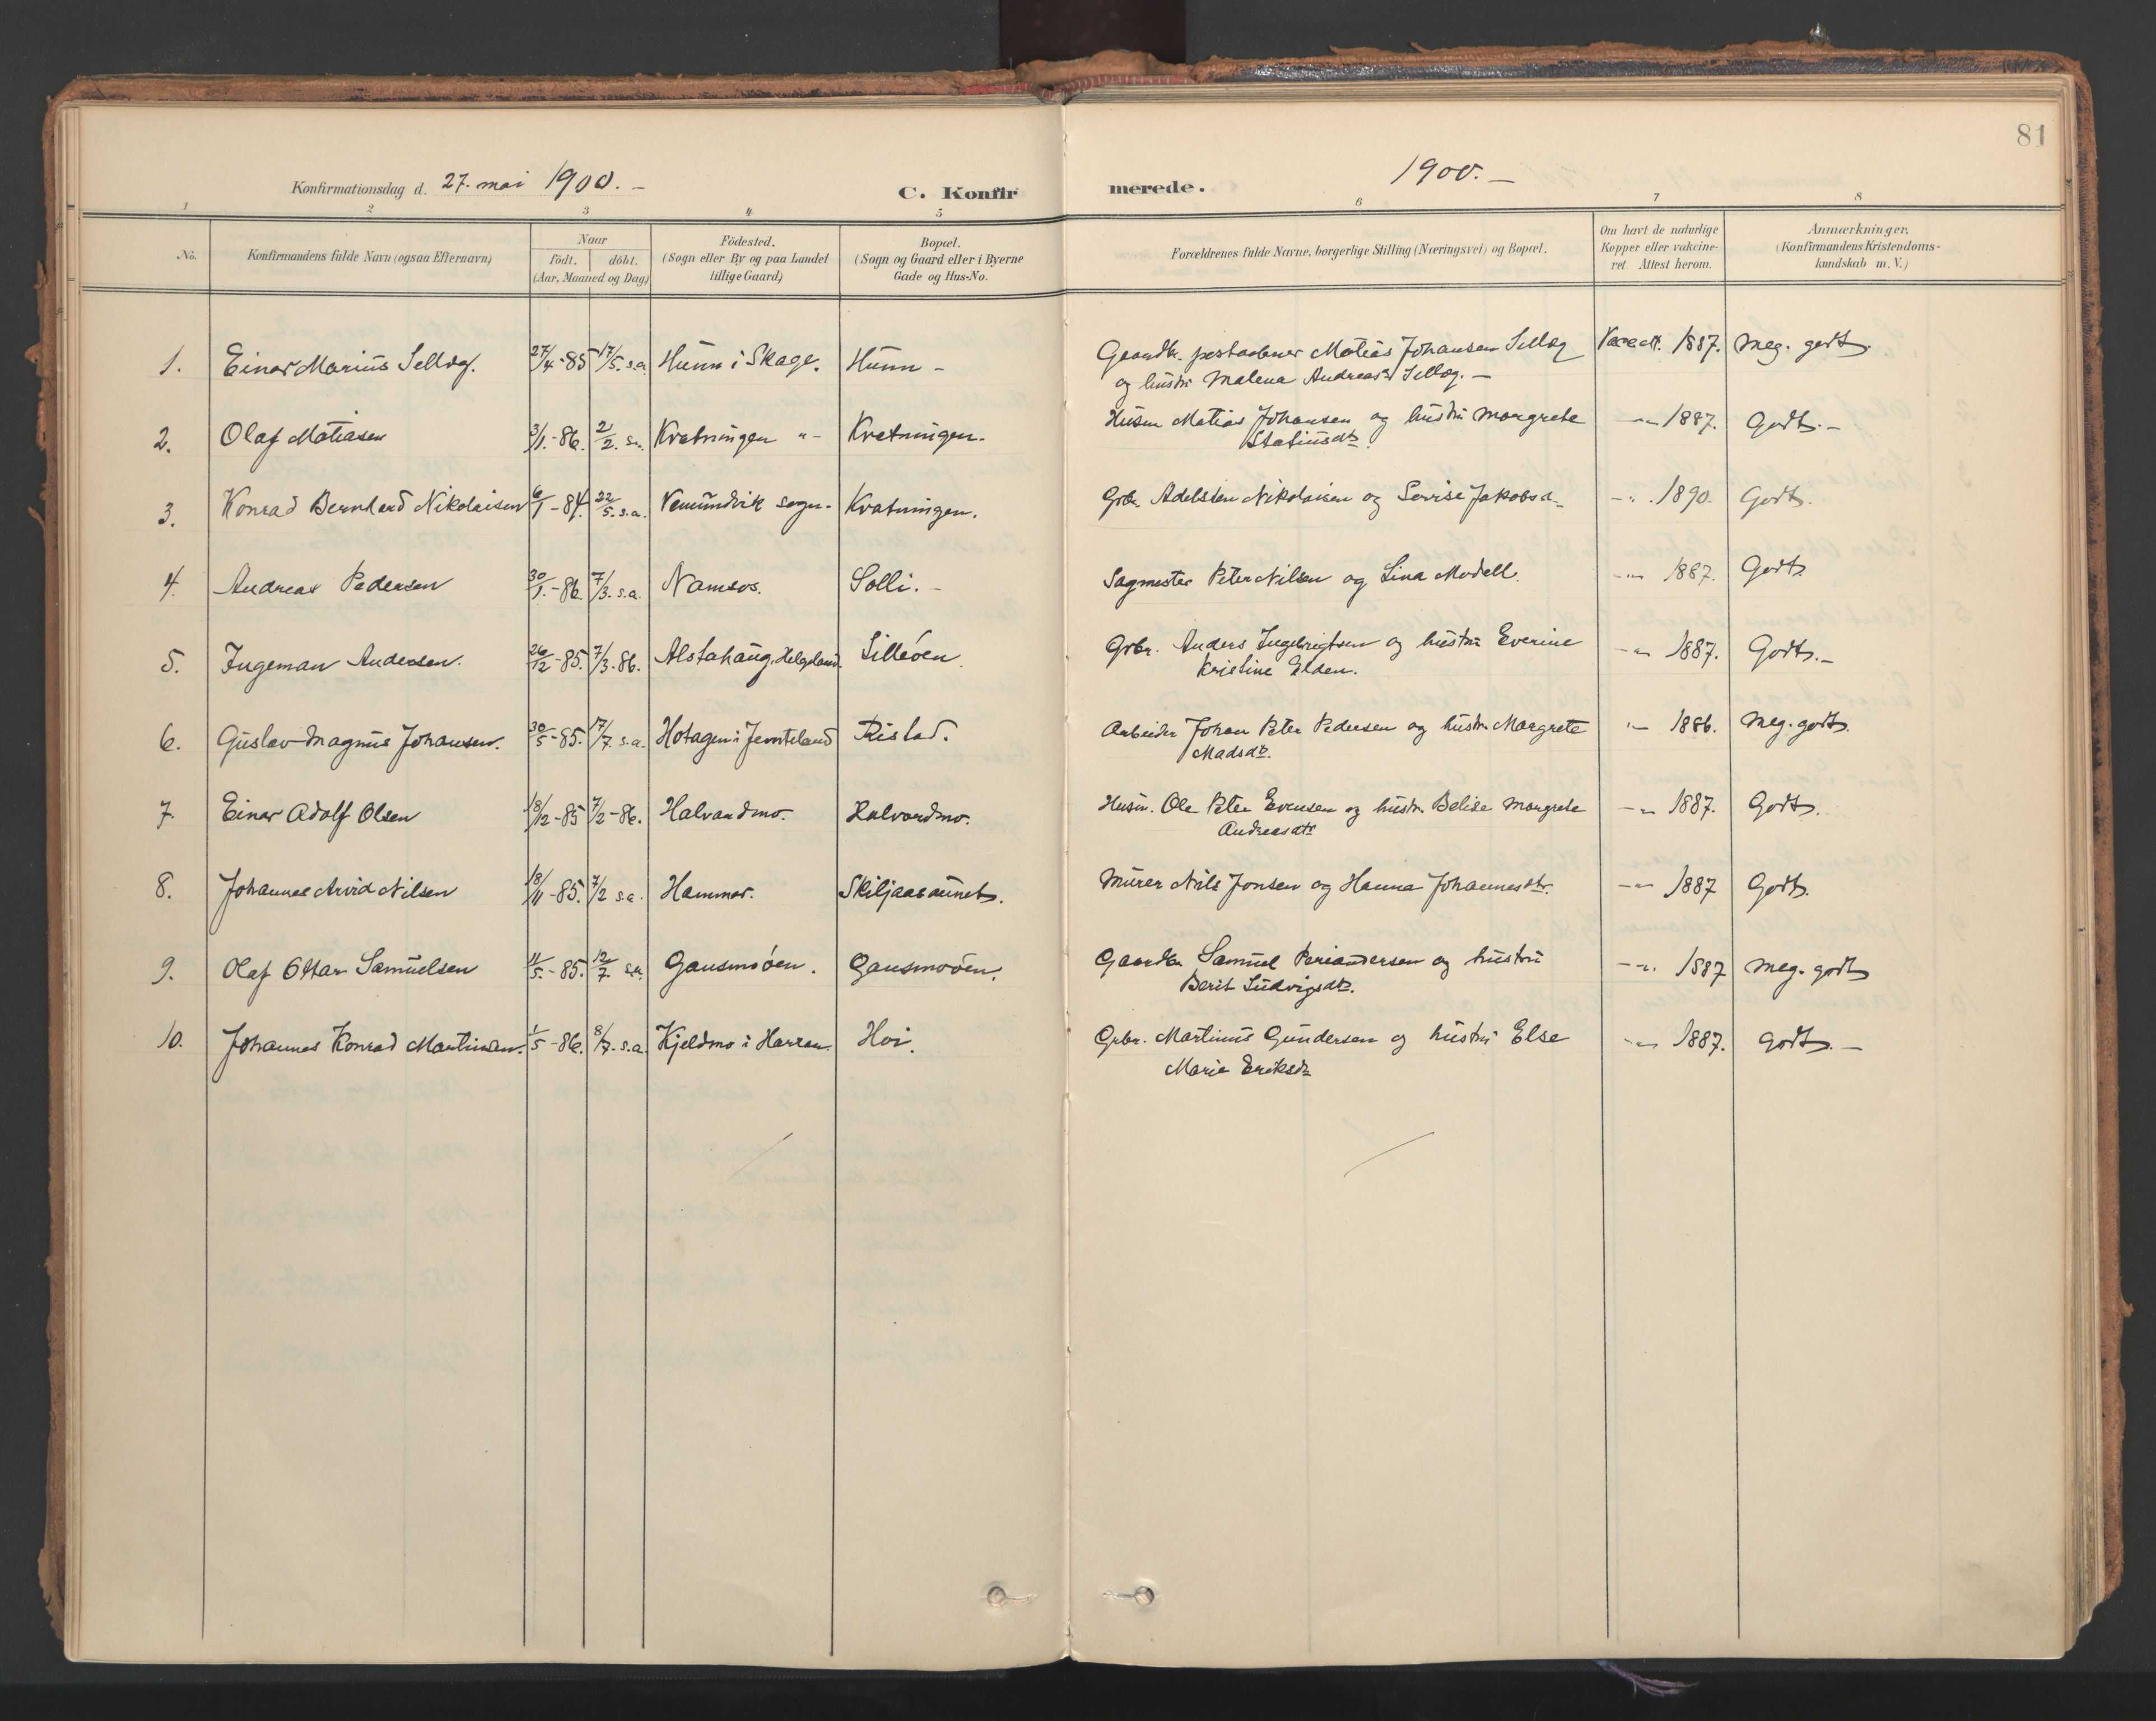 81
Konfirmationsdag d. 27. mai 1900. —
C. Konfirmerede.
1900. —
1 2 3 4 5 6 7 8
No.
Konfirmandens fulde Navn (ogsaa Efternavn)
Naar
födt. döbt.
(Aar, Maaned og Dag)
Födested.
(Sogn eller By og paa Landet
tillige Gaard)
Bopæl.
(Sogn og Gaard eller i Byerne
Gade og Hus-No.
Forældrenes fulde Navne, borgerlige Stilling (Næringsvei) og Bopæl.
Om havt de naturlige
Kopper eller vakcine-
ret. Attest herom.
Anmærkninger.
(Konfirmandens Kristendoms-
kundskab m. V.)
1. Einar Marius Sellæg. 27/4-85 17/5. s.a. Hunn i Skage. Hunn - Gaardbr. postaabner Matias Johansen Sellæg Vacc.att. 1887. Meg. godt.
og hustru Malena Andreasd. Sellæg. —
2. Olaf Matiasen 3/1.-86. 2/2. s.a. Kvatningen "- Kvatningen. Husm Matias Johansen og hustru Margrete -"- 1887. Godt. -
Statiusdtr.
3. Konrad Bernhard Nikolaisen 6/1-84. 22/5. s.a. Vemundvik sogn. Kvatningen. Grbr. Adelsten Nikolaisen og Serise Jakobsd. -"- 1890. Godt.
4. Andreas Pedersen 30/1.-86. 7/3. s.a. Namsos. Solli. - Sagmester Peter Nilsen og Lina Modell. -"- 1887. Godt.
5. Ingeman Andersen. 26/12-85. 7/3-86. Alstahaug, Helgeland. Lilleöen. Grbr. Anders Ingebrigtsen og hustru Everine -"- 1887. Godt. -
Kristine Elden.
6. Gustav Magnus Johansen. 30/5-85. 17/7. s.a. Hotagen i Jemteland Ristad. Arbeider Johan Peter Pedersen og hustru Margrete "- 1886. Meg. godt.
Madsdtr.
7. Einar Adolf Olsen 18/12-85 7/2-86. Halvardmo. Halvardmo. Husm. Ole Peter Evensen og hustru Belise Margrete -"- 1887. Godt.
Andreasdtr
8. Johannes Arvid Nilsen 18/11-85. 7/2 s.a. Hammer. Skiljaasaunet. Murer Nils Jonsen og Hanna Johannesdtr. -"- 1887 Godt.
9. Olaf Ottar Samuelsen 11/5.-85. 12/7. s.a. Gansmoöen. Gansmoöen. Gaardbr. Samuel Periandersen og hustru -"- 1887 Meg. godt
Berit Ludvigsdtr.
10. Johannes Konrad Martinsen. 1/5-86. 8/7. s.a. Kjeldmo i Harran Hoi. Grbr. Martinus Gundersen og hustru Else -"- 1887. Godt. —
Marie Eriksdtr